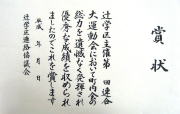 賞状
辻学区主催第　回連合
大運動会において町内会の
総力を遺憾なく発揮され
優秀な成績を収められ
ましたのでこれを賞します
平成　年　月　日
辻学区連絡協議会